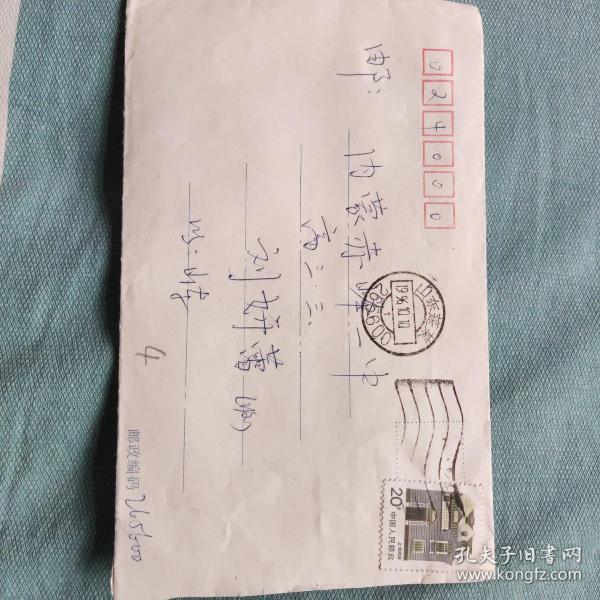 024000
邮:
内蒙赤峰一中
高二·三
刘妤蕾(收)
4
邮政编码 265600
山东蓬莱
1996.10.10
265600
20分
中国人民邮政
上海民居
孔夫子旧书网
www.kongfz.com